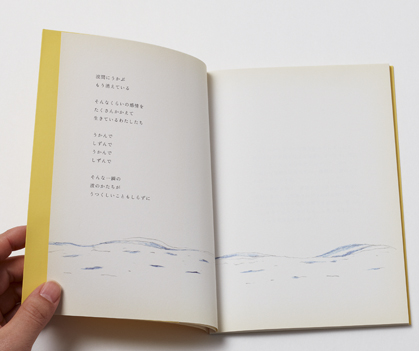 波間にうかぶ
もう消えている
そんなくらいの感情を
たくさんかかえて
生きているわたしたち
うかんで
しずんで
うかんで
しずんで
そんな一瞬の
波のかたちが
うつくしいこともしらずに